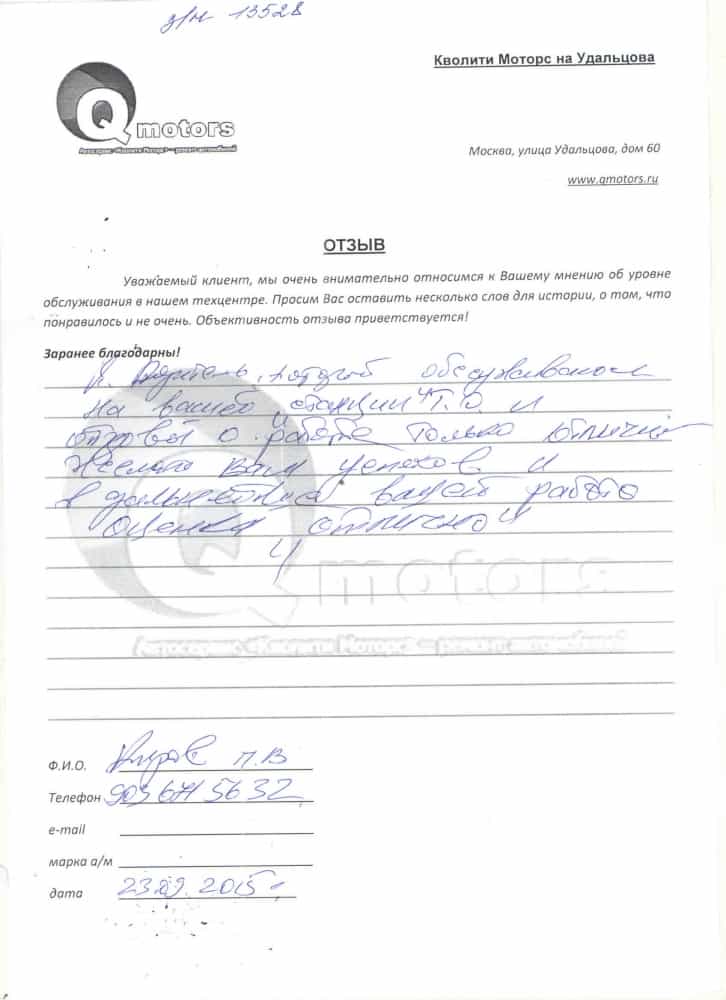 з/н 13528
Кволити Моторс на Удальцова
Q motors
Автосервис «Кволити Моторс» — ремонт автомобилей
Москва, улица Удальцова, дом 60
www.qmotors.ru
ОТЗЫВ
Уважаемый клиент, мы очень внимательно относимся к Вашему мнению об уровне
обслуживания в нашем техцентре. Просим Вас оставить несколько слов для истории, о том, что
понравилось и не очень. Объективность отзыва приветствуется!
Заранее благодарны!
Я. Водитель, который обслуживался
на вашей станции Т.О. и
отзывы о работе только отличные
Желаю вам успехов и
в дальнейшей вашей работе
оценка "отлично"
Q motors
Автосервис «Кволити Моторс» — ремонт автомобилей
Ф.И.О. П.В
Телефон 903 671 56 32
e-mail
марка а/м
дата 23.09.2015 г.